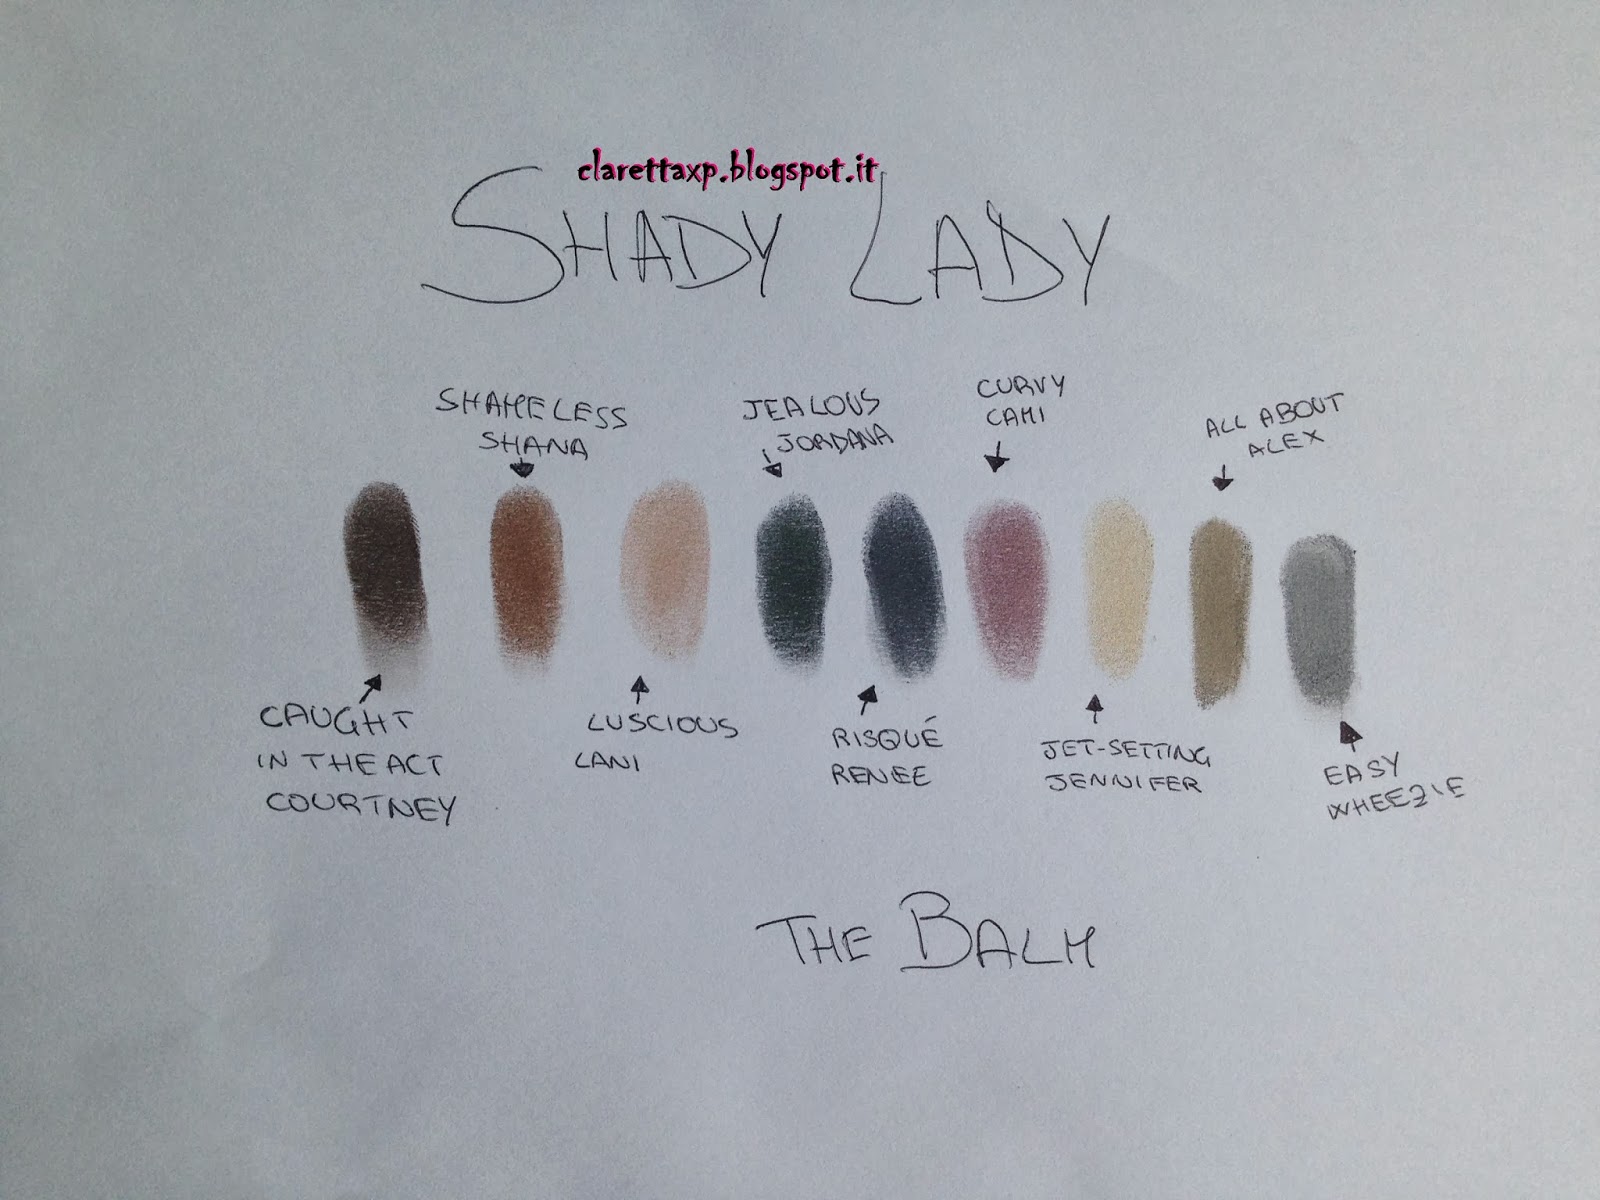 clarettaxp.blogspot.it
SHADY LADY
SHAMELESS
SHANA
JEALOUS
JORDANA
CURVY
CAMI
ALL ABOUT
ALEX
CAUGHT
IN THE ACT
COURTNEY
LUSCIOUS
LANI
RISQUÉ
RENEE
JET-SETTING
JENNIFER
EASY
WHEEZIE
THE BALM